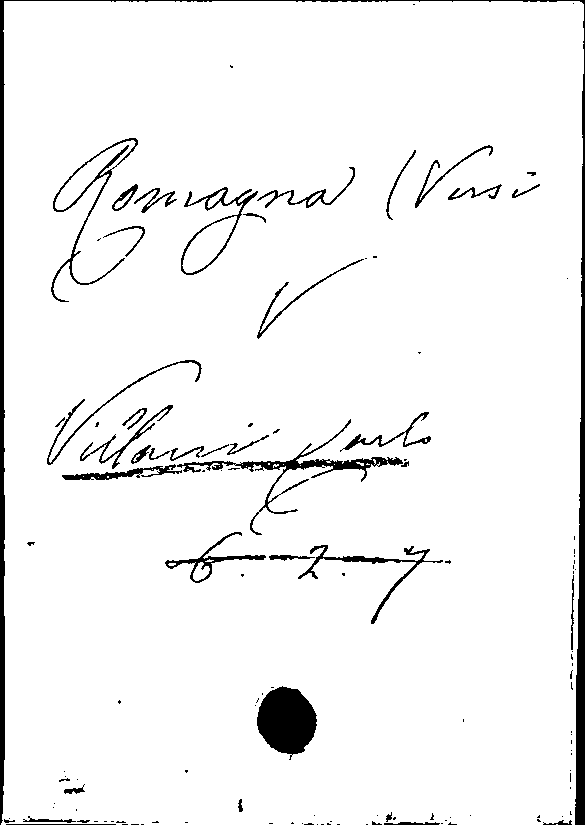 Romagna (Versi
V
Villani Carlo
6. 2. 7